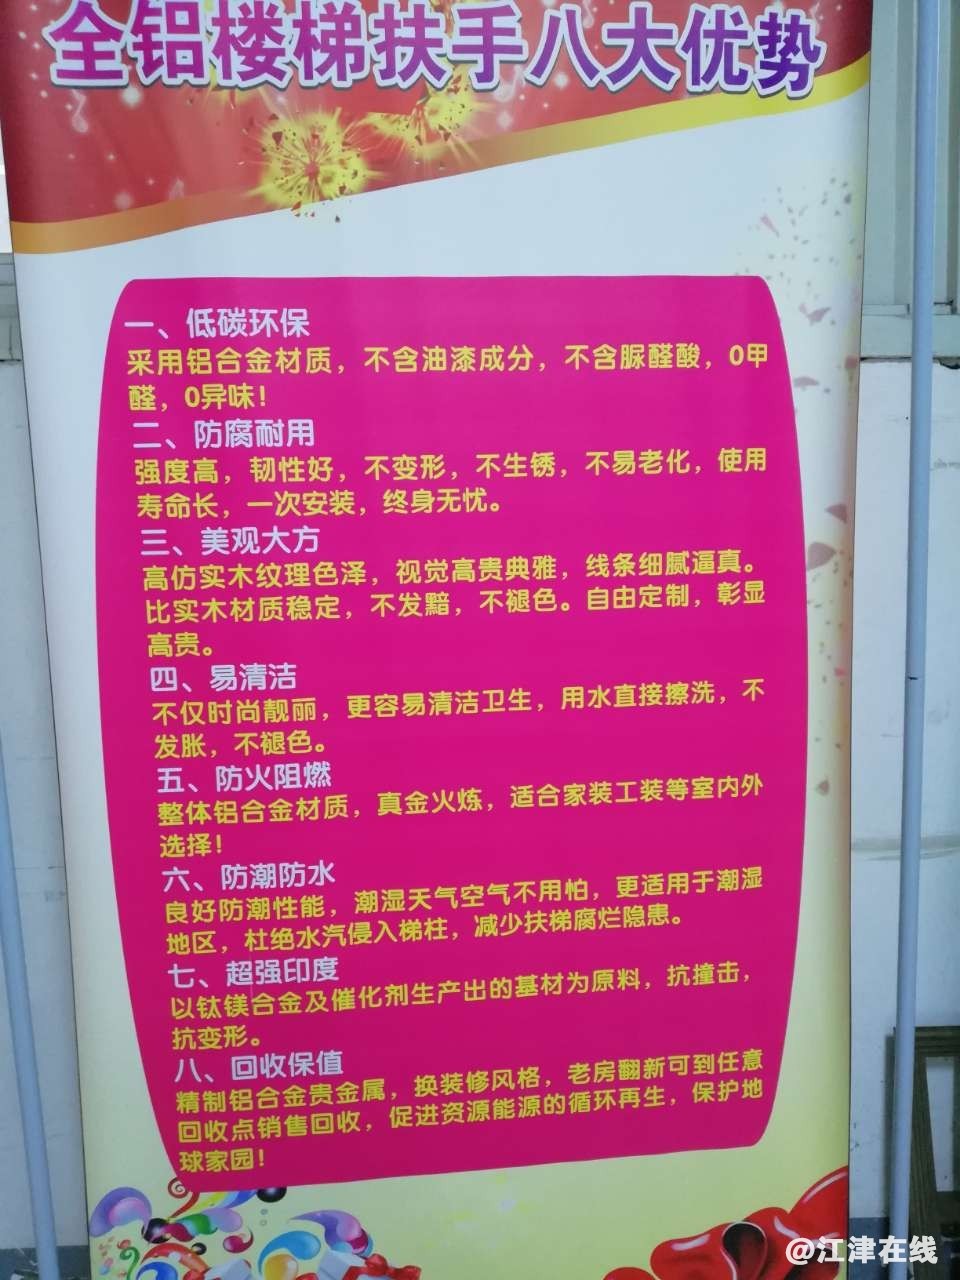 全铝楼梯扶手八大优势
一、低碳环保
采用铝合金材质，不含油漆成分，不含脲醛酸，0甲
醛，0异味！
二、防腐耐用
强度高，韧性好，不变形，不生锈，不易老化，使用
寿命长，一次安装，终身无忧。
三、美观大方
高仿实木纹理色泽，视觉高贵典雅，线条细腻逼真。
比实木材质稳定，不发黯，不褪色。自由定制，彰显
高贵。
四、易清洁
不仅时尚靓丽，更容易清洁卫生，用水直接擦洗，不
发胀，不褪色。
五、防火阻燃
整体铝合金材质，真金火炼，适合家装工装等室内外
选择！
六、防潮防水
良好防潮性能，潮湿天气空气不用怕，更适用于潮湿
地区，杜绝水汽侵入梯柱，减少扶梯腐烂隐患。
七、超强印度
以钛镁合金及催化剂生产出的基材为原料，抗撞击，
抗变形。
八、回收保值
精制铝合金贵金属，换装修风格，老房翻新可到任意
回收点销售回收，促进资源能源的循环再生，保护地
球家园！
@江津在线